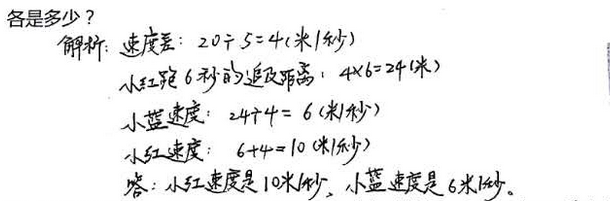 各是多少？
解析：速度差：20÷5=4（米/秒）
小红跑6秒的追及距离：4×6=24（米）
小蓝速度：24÷4=6（米/秒）
小红速度：6+4=10（米/秒）
答：小红速度是10米/秒，小蓝速度是6米/秒。